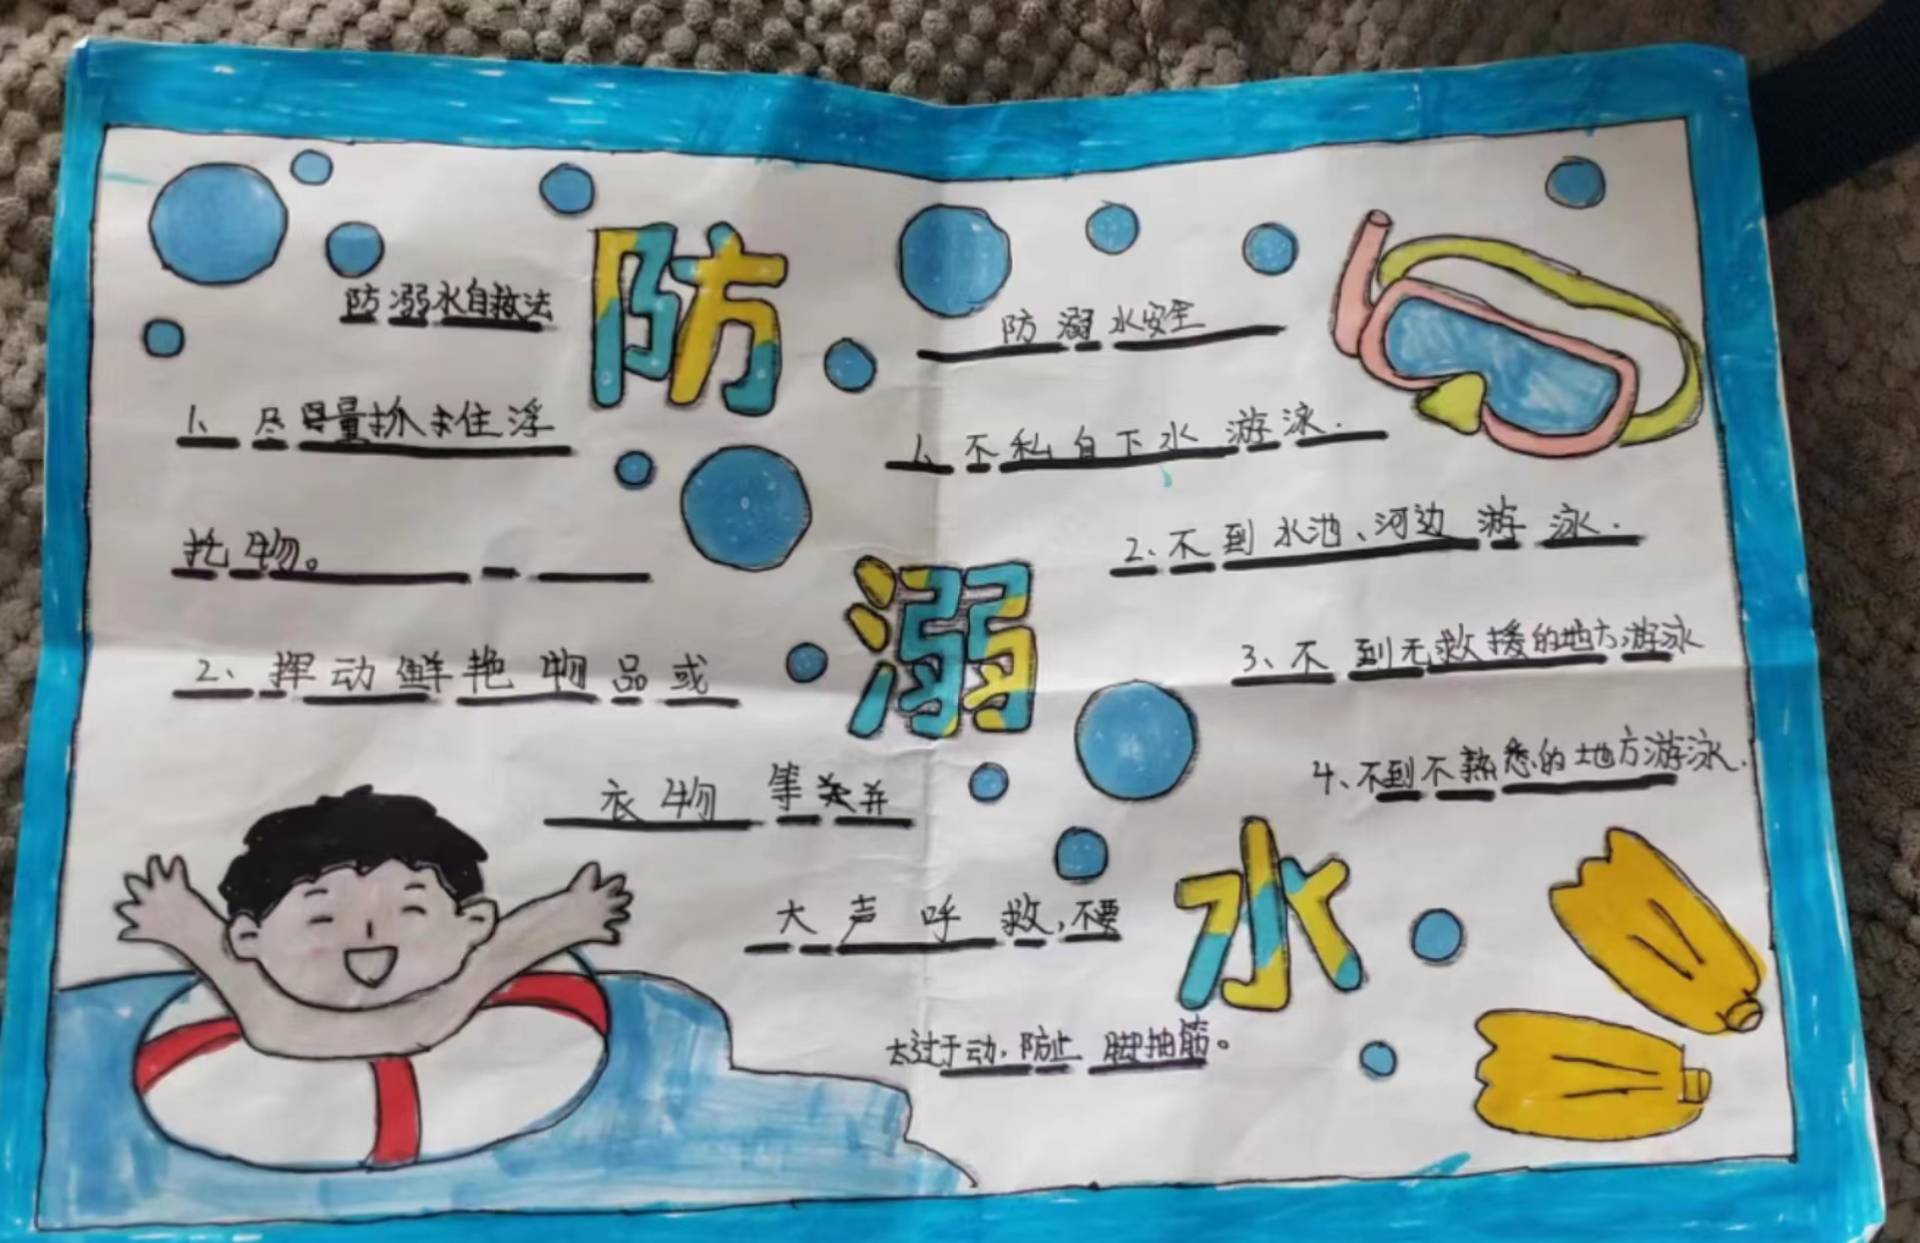 防溺水
防溺水自救法
1、尽量抓住浮
托物。
2、挥动鲜艳物品或
衣物等并
大声呼救,不要
太过于动,防止脚抽筋。
防溺水安全
1、不私自下水游泳.
2、不到水池、河边游泳.
3、不到无救援的地方游泳
4、不到不熟悉的地方游泳.